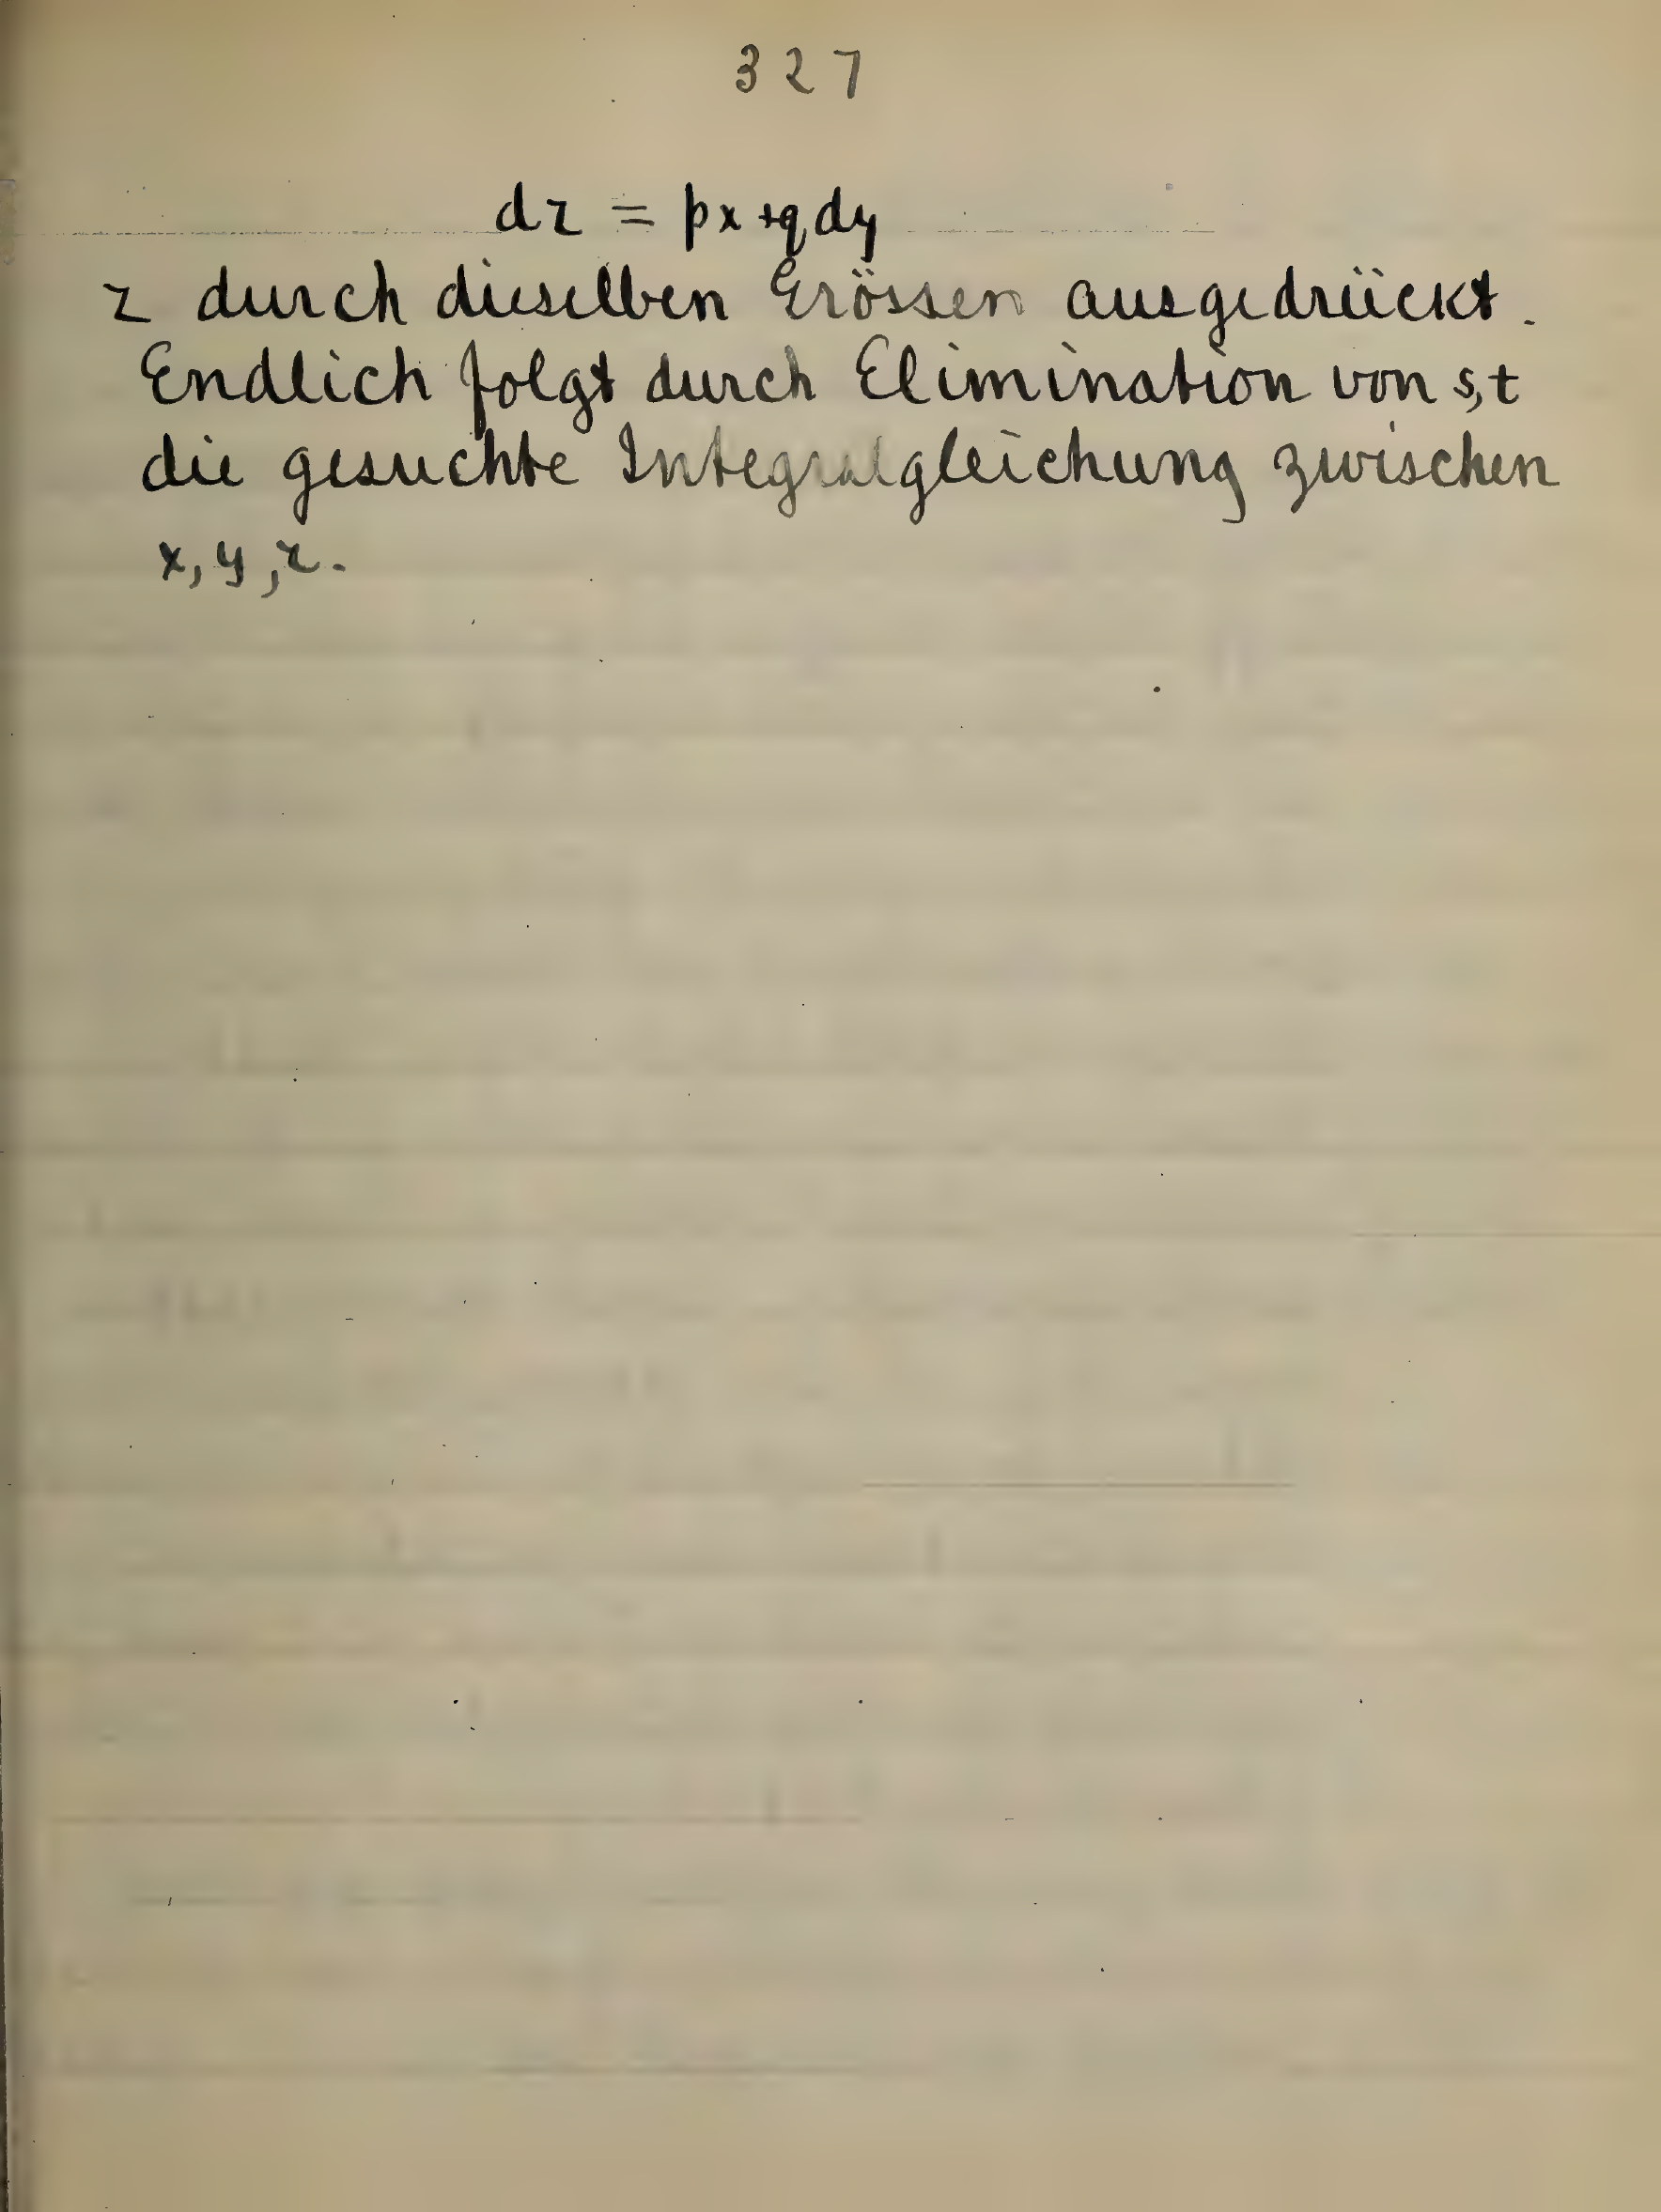 327
dz = px+qdy
z durch dieselben Grössen ausgedrückt.
Endlich folgt durch Elimination von s,t
die gesuchte Integralgleichung zwischen
x, y, z.